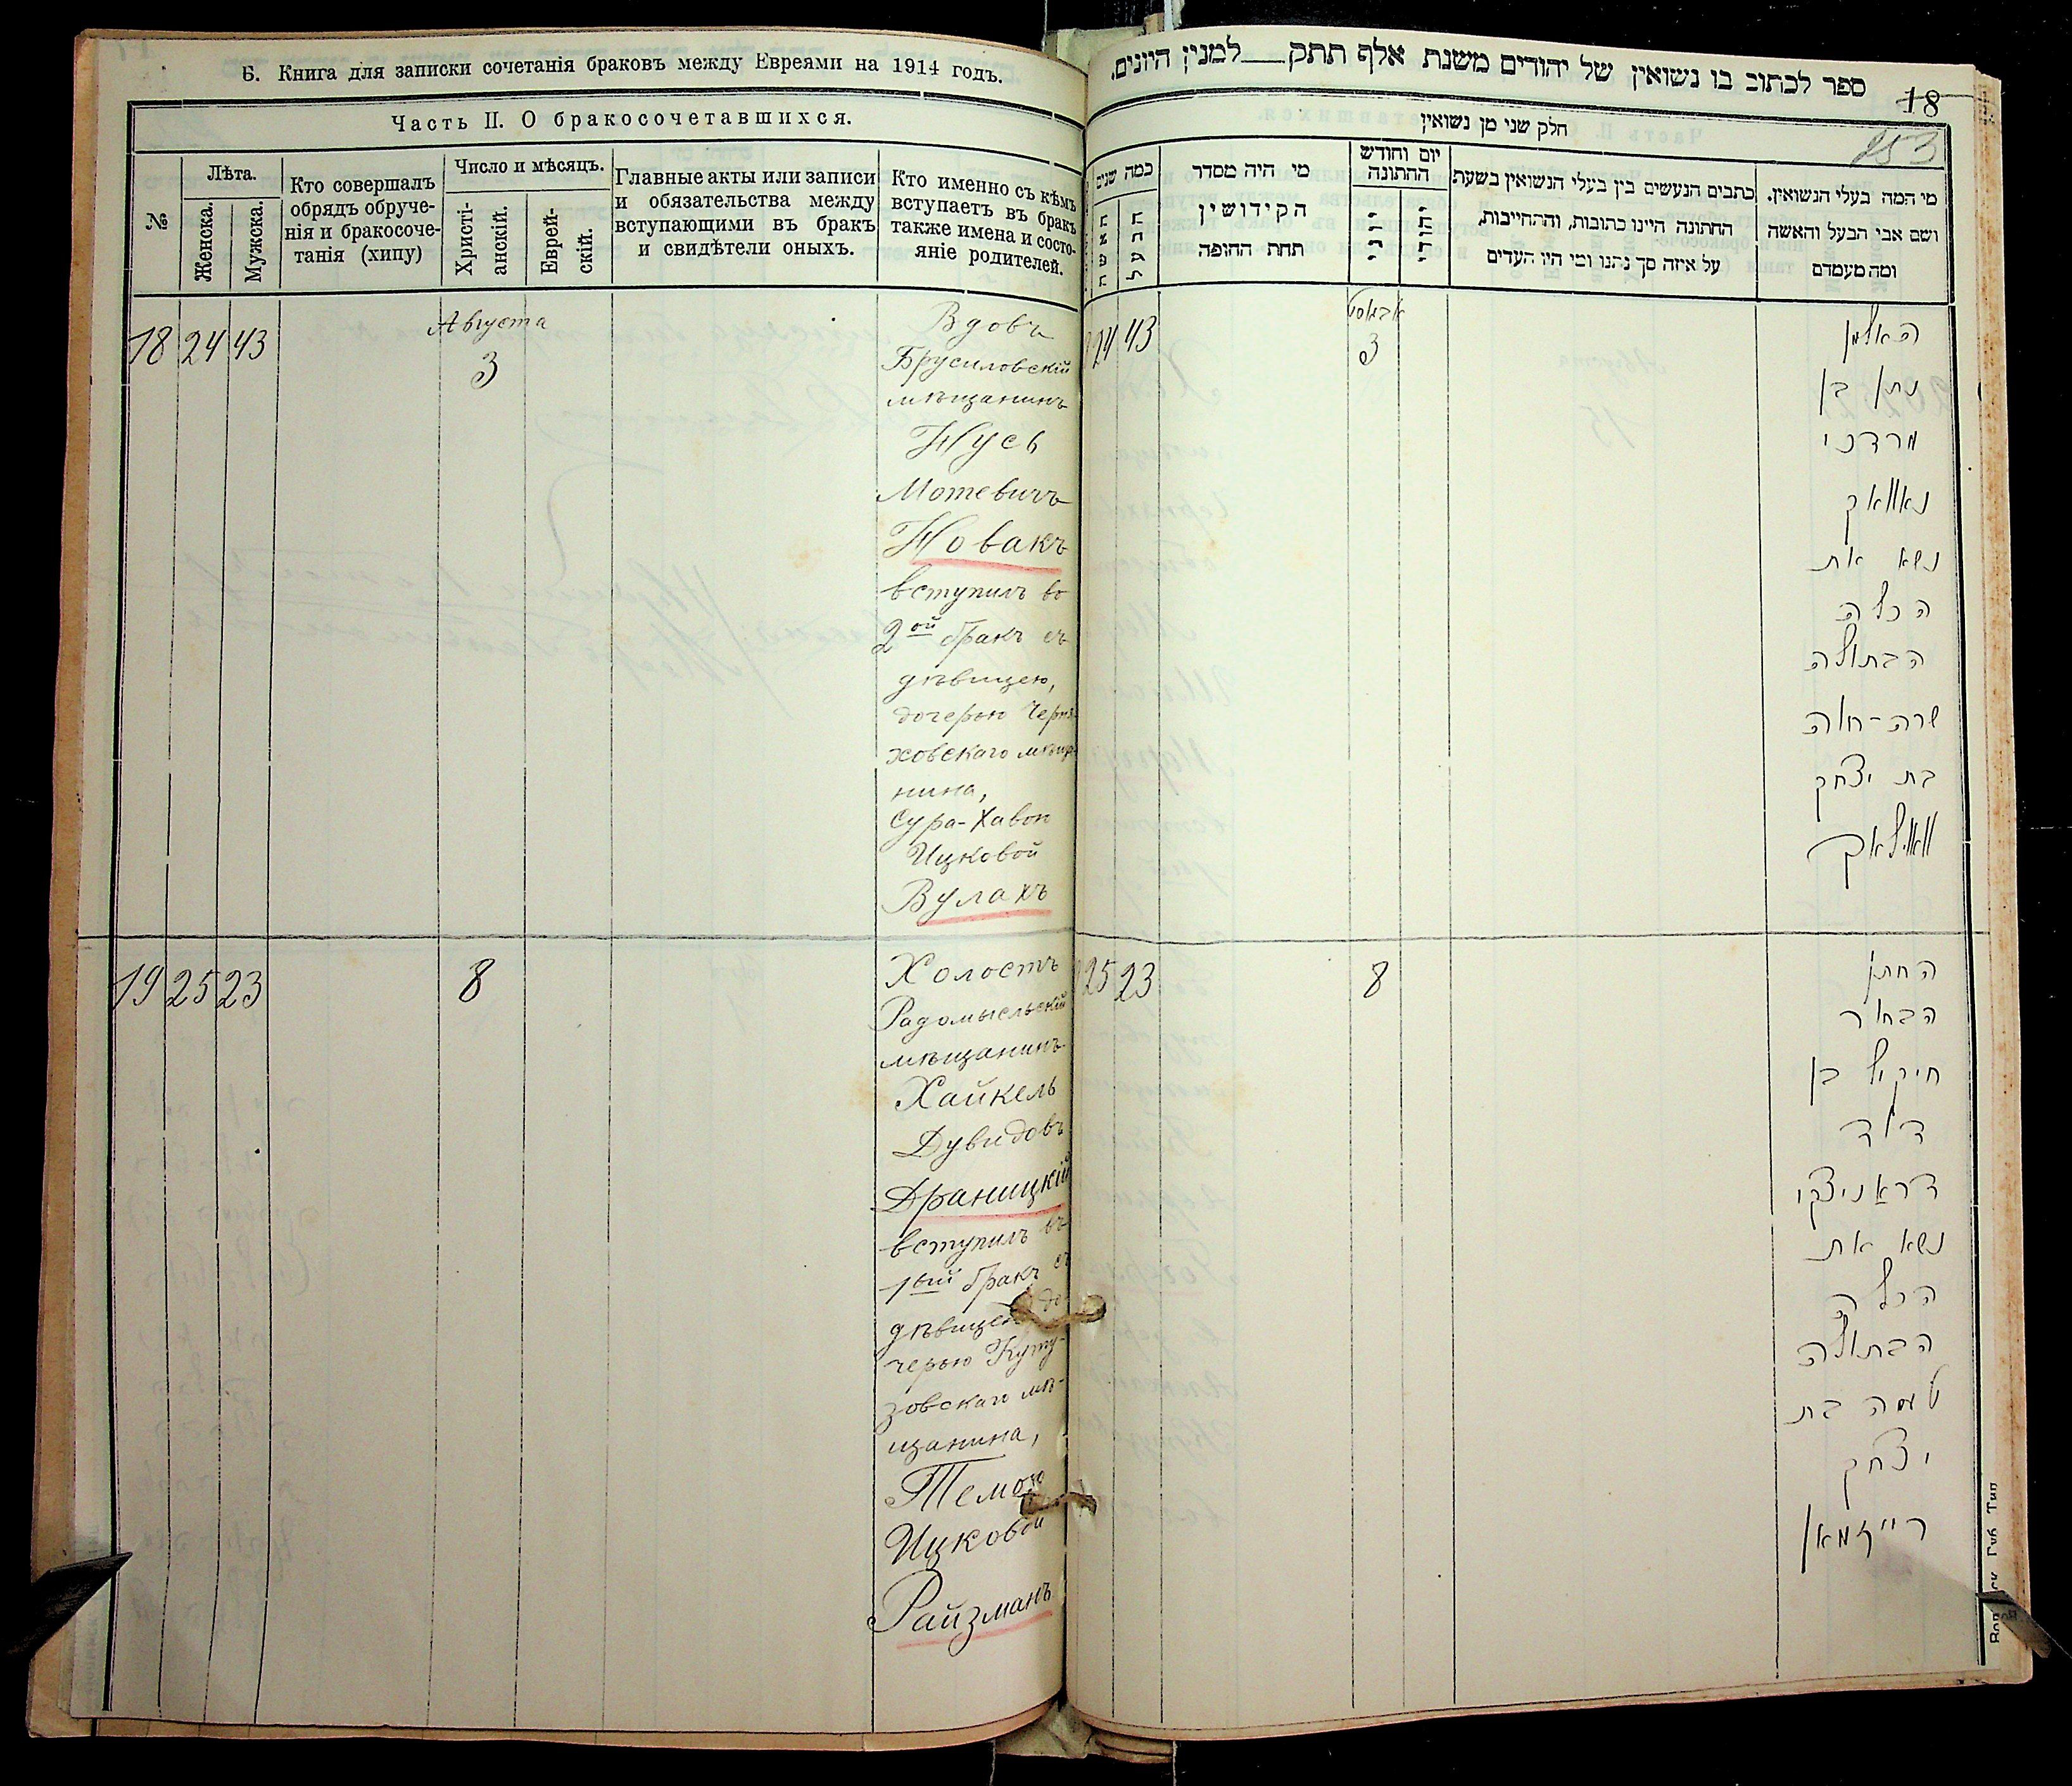 Б. Книга для записки сочетанія браковъ между Евреями на 1914 годъ.
Часть II. О бракосочетавшихся.
№
Лѣта.
Женска.
Мужска.
Кто совершалъ
обрядъ обруче-
нія и бракосоче-
танія (хипу)
Число и мѣсяцъ.
Христі-
анскій.
Еврей-
скій.
Главные акты или записи
и обязательства между
вступающими въ бракъ
и свидѣтели оныхъ.
Кто именно съ кѣмъ
вступаетъ въ бракъ
также имена и состо-
яніе родителей.
18 24 43
Августа
3
Вдовъ
Брусиловскій
мѣщанинъ
Нусь
Мотевичъ
Новакъ
вступилъ во
2ой бракъ съ
дѣвицею,
дочерью Черня-
ховскаго мѣща-
нина,
Сура-Хавою
Ицковой
Вулахъ
19 25 23
8
Холостъ
Радомысльскій
мѣщанинъ
Хайкель
Дувидовъ
Драницкій
вступилъ въ
1ый бракъ съ
дѣвицею до-
черью Куту-
зовскаго мѣ-
щанина,
Темою
Ицковой
Райзманъ
ספר לכתוב בו נשואין של יהודים משנת אלף תתק למנין היונים.
18
253
חלק שני מן נשואין
כמה שנים
האשה
הבעל
מי היה מסדר
הקידושין
תחת החופה
יום וחודש
החתונה
כתבים הנעשים בין בעלי הנשואין בשעת
החתונה היינו כתובות, וההתחייבות,
על איזה סך נתנו ומי היו העדים
מי המה בעלי הנשואין.
ושם אבי הבעל והאשה
ומה מעמדם
24 43
אבגוסט
3
האלמן
נתן בן
מרדכי
נאוואק
נשא את
הכלה
הבתולה
שרה-חוה
בת יצחק
וואולאך
25 23
8
החתן
הבחור
חיקיל בן
דוד
דראניצקי
נשא את
הכלה
הבתולה
טעמה בת
יצחק
רייזמאן